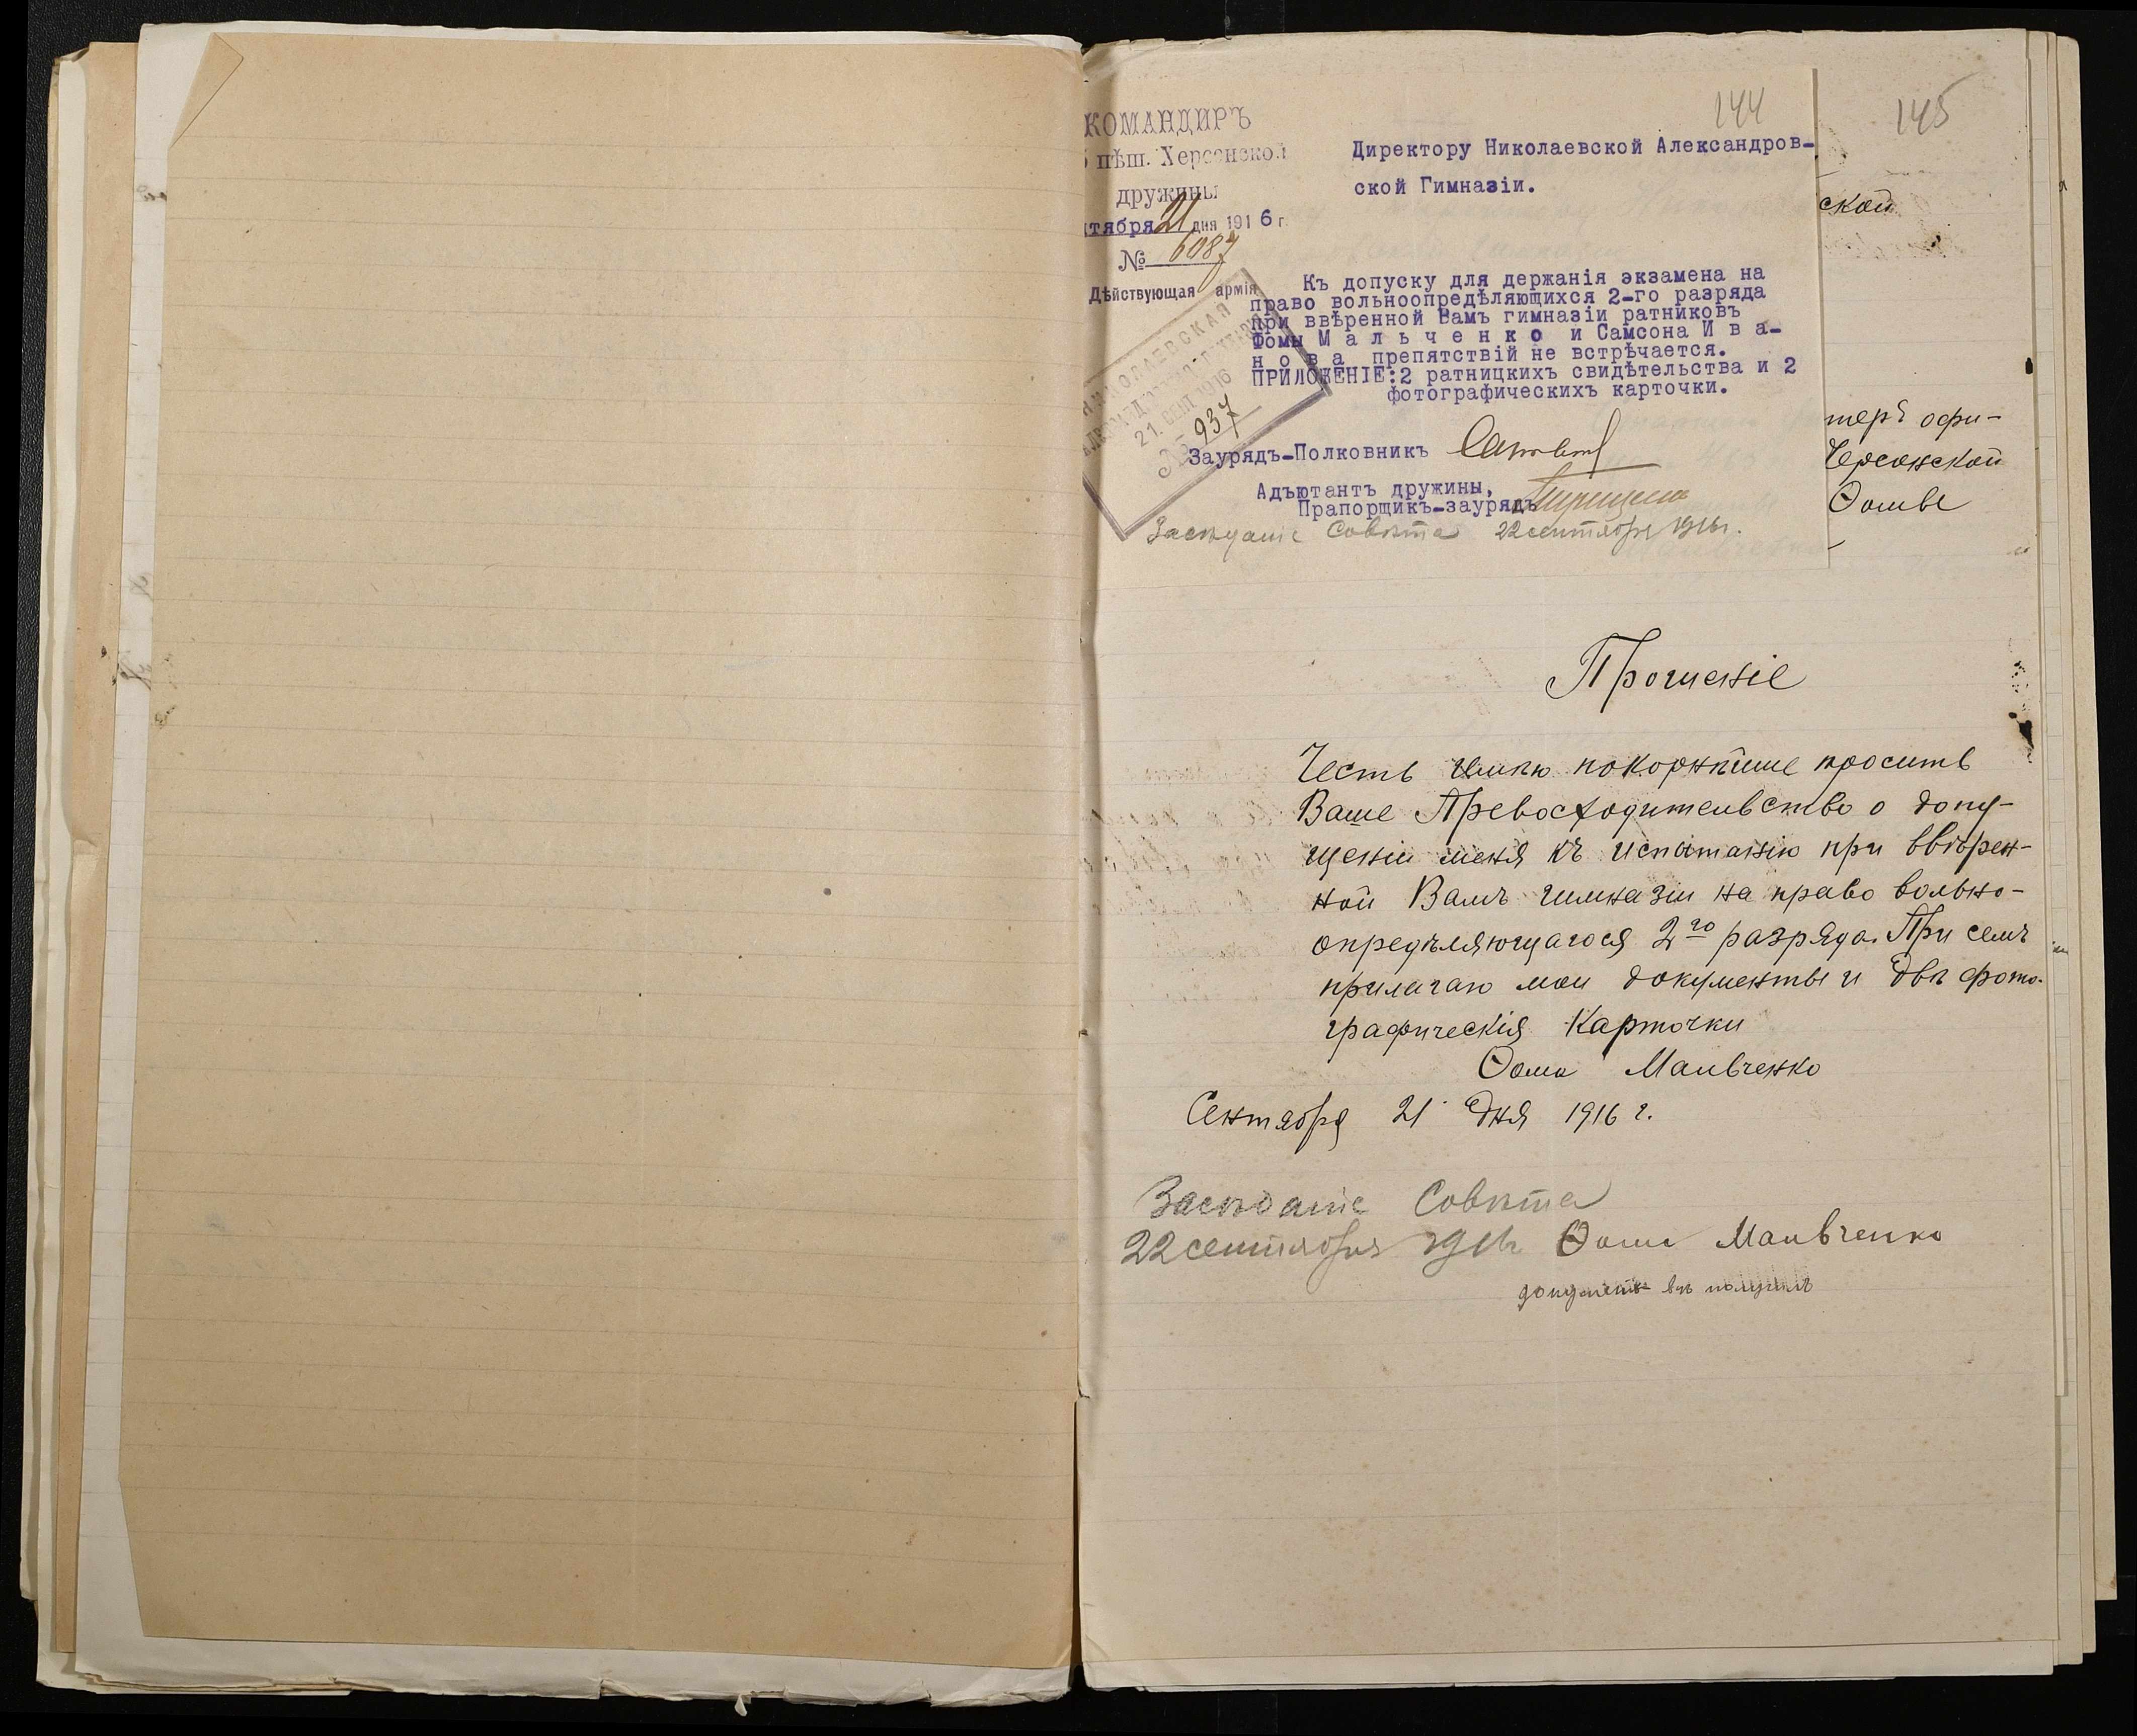 144
145
КОМАНДИРЪ
пѣш. Херсонской
дружины
тября 21 дня 1916 г.
№ 6087
Дѣйствующая армія
Директору Николаевской Александров-
ской Гимназіи.
Къ допуску для держанія экзамена на
право вольноопредѣляющихся 2-го разряда
при ввѣренной Вамъ гимназіи ратниковъ
Фомы Мальченко и Самсона Ива-
нова препятствій не встрѣчается.
ПРИЛОЖЕНІЕ:2 ратницкихъ свидѣтельства и 2
фотографическихъ карточки.
НИКОЛАЕВСКАЯ
21. СЕНТ. 1916
№ 937
Заурядъ-Полковникъ
Адъютантъ дружины,
Прапорщикъ-заурядъ
Засѣданіе Совѣта 22 сентября 1916 г.
ской
теръ офи-
Херсонской
Ѳомы
Прошеніе
Честь имѣю покорнѣйше просить
Ваше Превосходительство о допу-
щеніи меня къ испытанію при ввѣрен-
ной Вамъ гимназіи на право вольно-
опредѣляющагося 2го разряда. При семъ
прилагаю мои документы и двѣ фото-
графическія карточки
Ѳома Мальченко
Сентября 21 дня 1916 г.
Засѣданіе Совѣта
22 сентября 1916 Ѳома Мальченко
документы получилъ